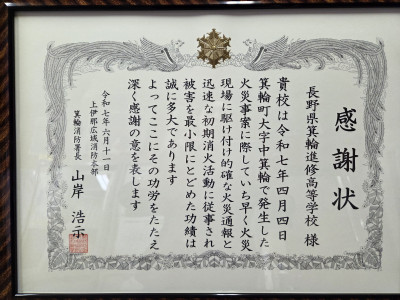 感謝状
長野県箕輪進修高等学校 様
貴校は令和七年四月四日
箕輪町大字中箕輪で発生した
火災事案に際していち早く火災
現場に駆け付け的確な火災通報と
迅速な初期消火活動に従事され
被害を最小限にとどめた功績は
誠に多大であります
よってここにその功労をたたえ
深く感謝の意を表します
令和七年六月十一日
上伊那広域消防本部
箕輪消防署長 山岸 浩示